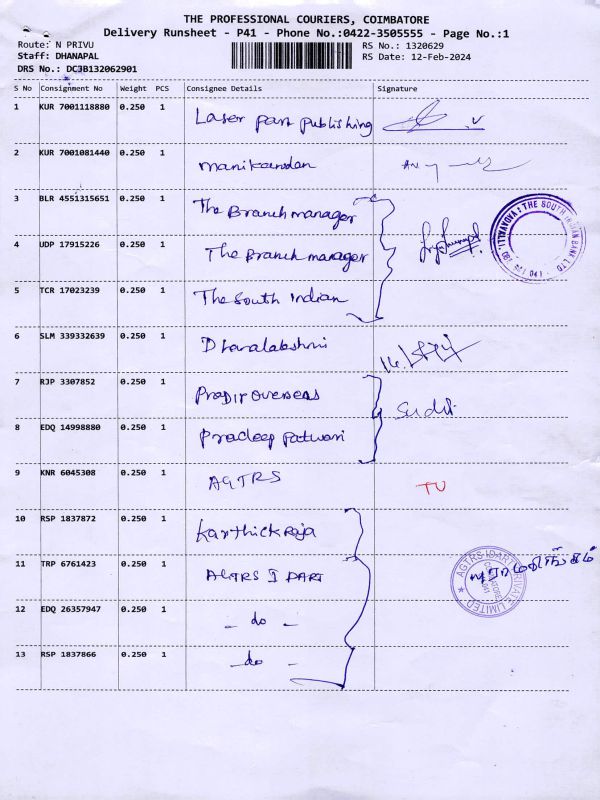 THE PROFESSIONAL COURIERS, COIMBATORE
Delivery Runsheet - P41 - Phone No.:0422-3505555 - Page No.:1
Route: N PRIVU
RS No.: 1320629
Staff: DHANAPAL
RS Date: 12-Feb-2024
DRS No.: DC3B132062901
S No Consignment No Weight PCS Consignee Details Signature
1 KUR 7001118880 0.250 1 Laser park publishing
2 KUR 7001081440 0.250 1 manikandan
3 BLR 4551315651 0.250 1 The Branch manager
4 UDP 17915226 0.250 1 The Branch manager
THE SOUTH INDIAN BANK LTD
5 TCR 17023239 0.250 1 The South Indian
6 SLM 339332639 0.250 1 Dhanalakshmi
7 RJP 3307852 0.250 1 Pradip overseas
8 EDQ 14998880 0.250 1 Pradeep Patwari
9 KNR 6045308 0.250 1 AGTRS TU
10 RSP 1837872 0.250 1 Karthick Raja
11 TRP 6761423 0.250 1 AGTRS I DART
AGTRS IDART PRIVATE LIMITED
12 EDQ 26357947 0.250 1 - do -
13 RSP 1837866 0.250 1 - do -